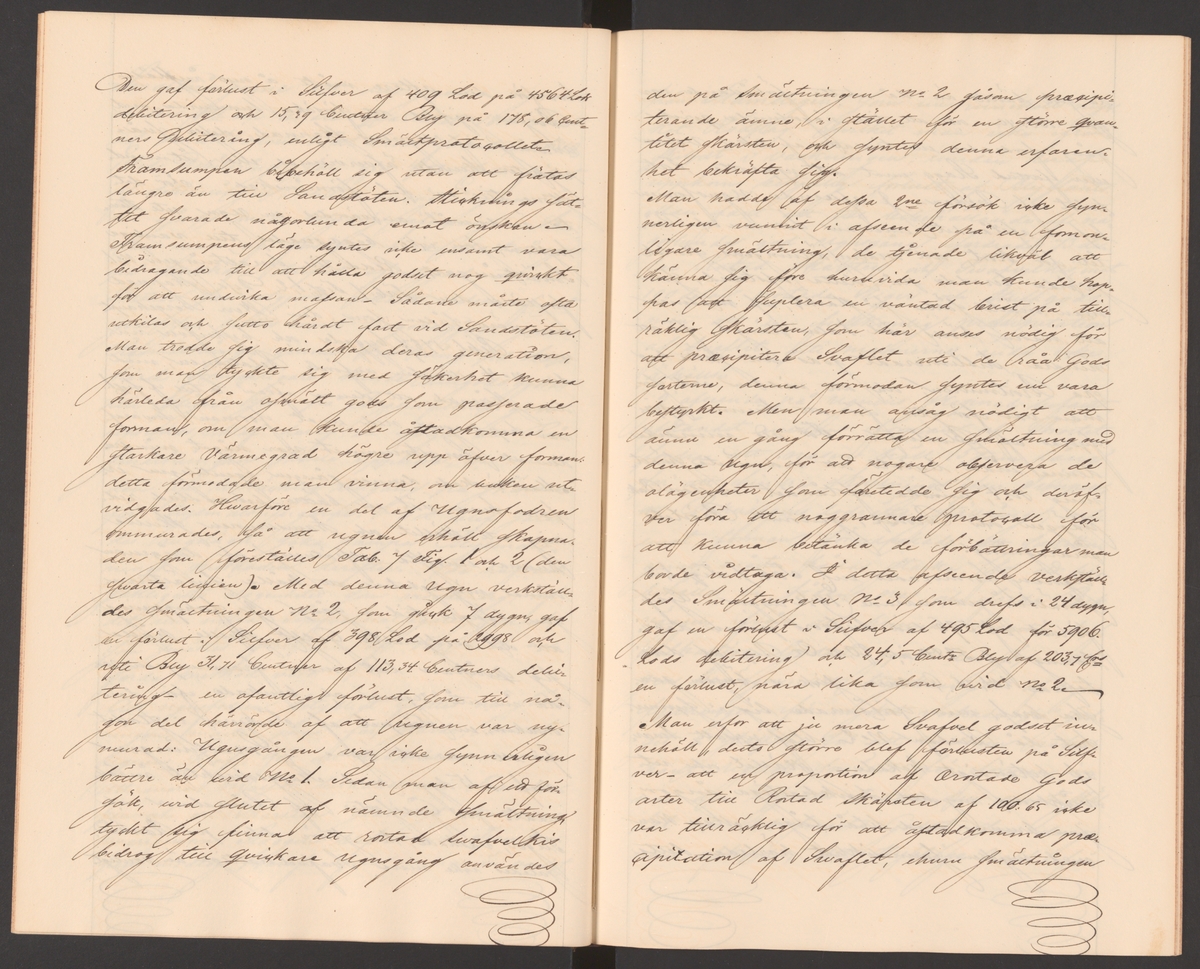 Den gaf förlust i Silfver af 409 Lod på 4564 Lods
debitering och 15,39 Centner Bly på 175,06 Cent-
ners Debitering, enligt Smältprotocollet.
Framsumpen bibehöll sig utan att frätas
längre än till Sandstöten. Stickningssät-
tet svarade någorlunda emot önskan –
Framsumpens läge syntes icke ensamt vara
bidragande till att hålla godset nog qvickt
för att undvika massan – Sådane måste ofta
utkilas och sutto hårdt fast vid Sandstöten.
Man trodde sig mindska deras generation,
som man tyckte sig med säkerhet kunna
härleda från osmält gods som passerade
forman, om man kunde åstadkomma en
starkare Värmegrad högre upp öfver forman:
detta förmodade man vinna, om buken ut-
vidgades. Hvarföre en del af Ugnsfodren
ommurades, så att ugnen erhöll skapna-
den som föreställes Tab. 7 Fig. 1 och 2 (den
svarta linien). Med denna Ugn verkstäl-
des smältningen No 2, som gick 7 dygn, gaf
en förlust i Silfver af 398 Lod på 2998 och
uti Bly 31,71 Centner af 113,34 Centners debi-
tering – en ofantlig förlust, som till nå-
gon del härrörde af att ugnen var ny-
murad: Ugnsgången var icke synnerligen
bättre än wid No 1. Sedan man af ett för-
sök, wid slutet af nämnde smältning,
tyckt sig finna att rostad swafvelkis
bidrog till qvickare ugnsgång användes
den på smältningen No 2 såsom præcipi-
terande ämne, i stället för en större qvan-
titet skärsten, och syntes denna erfaren-
het bekräfta sig.
Man hadde af dessa 2ne försök icke syn-
nerligen vunnit i afseende på en förmon-
ligare smältning, de tjenade likväl att
känna sig före huruvida man kunde hop-
pas att suplera en väntad brist på till-
räklig Skärsten, som här anses nödig för
att præcipitera Svaflet uti de råa Gods
sorterne, denna förmodan syntes nu vara
bestyrkt. Men man ansåg nödigt att
ännu en gång förrätta en smältning med
denna ugn, för att nogare observera de
olägenheter som företedde sig och deröf-
ver föra ett noggrannare protocoll för
att kunna betänka de förbättringar man
borde vidtaga. I detta afseende verkstäl-
des Smältningen No 3 som drefs i 24 dygn,
gaf en förlust i Silfver af 495 Lod för 5906
Lods debitering och 24,5 Centr Bly af 203,7
en förlust, nära lika som wid No 2.
Man erfor att ju mera Svafvel godset in-
nehöll desto större blef förlusten på Silf-
ver – att en proportion af Orostade Gods
arter till Rostad Skärsten af 100:65 icke
var tillräcklig för att åstadkomma præ-
cipitation af Svaflet, ehuru smältningen